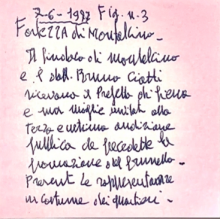 7-6-1997 Fig. n. 3
Fortezza di Montalcino -
Il Sindaco di Montalcino
e il dott. Bruno Ciatti
ricevono il Prefetto di Siena
e sua moglie invitati alla
Terza e ultima audizione
pubblica che precedette la
promozione del Brunello -
Presenti le rappresentanze
in costume dei quartieri -